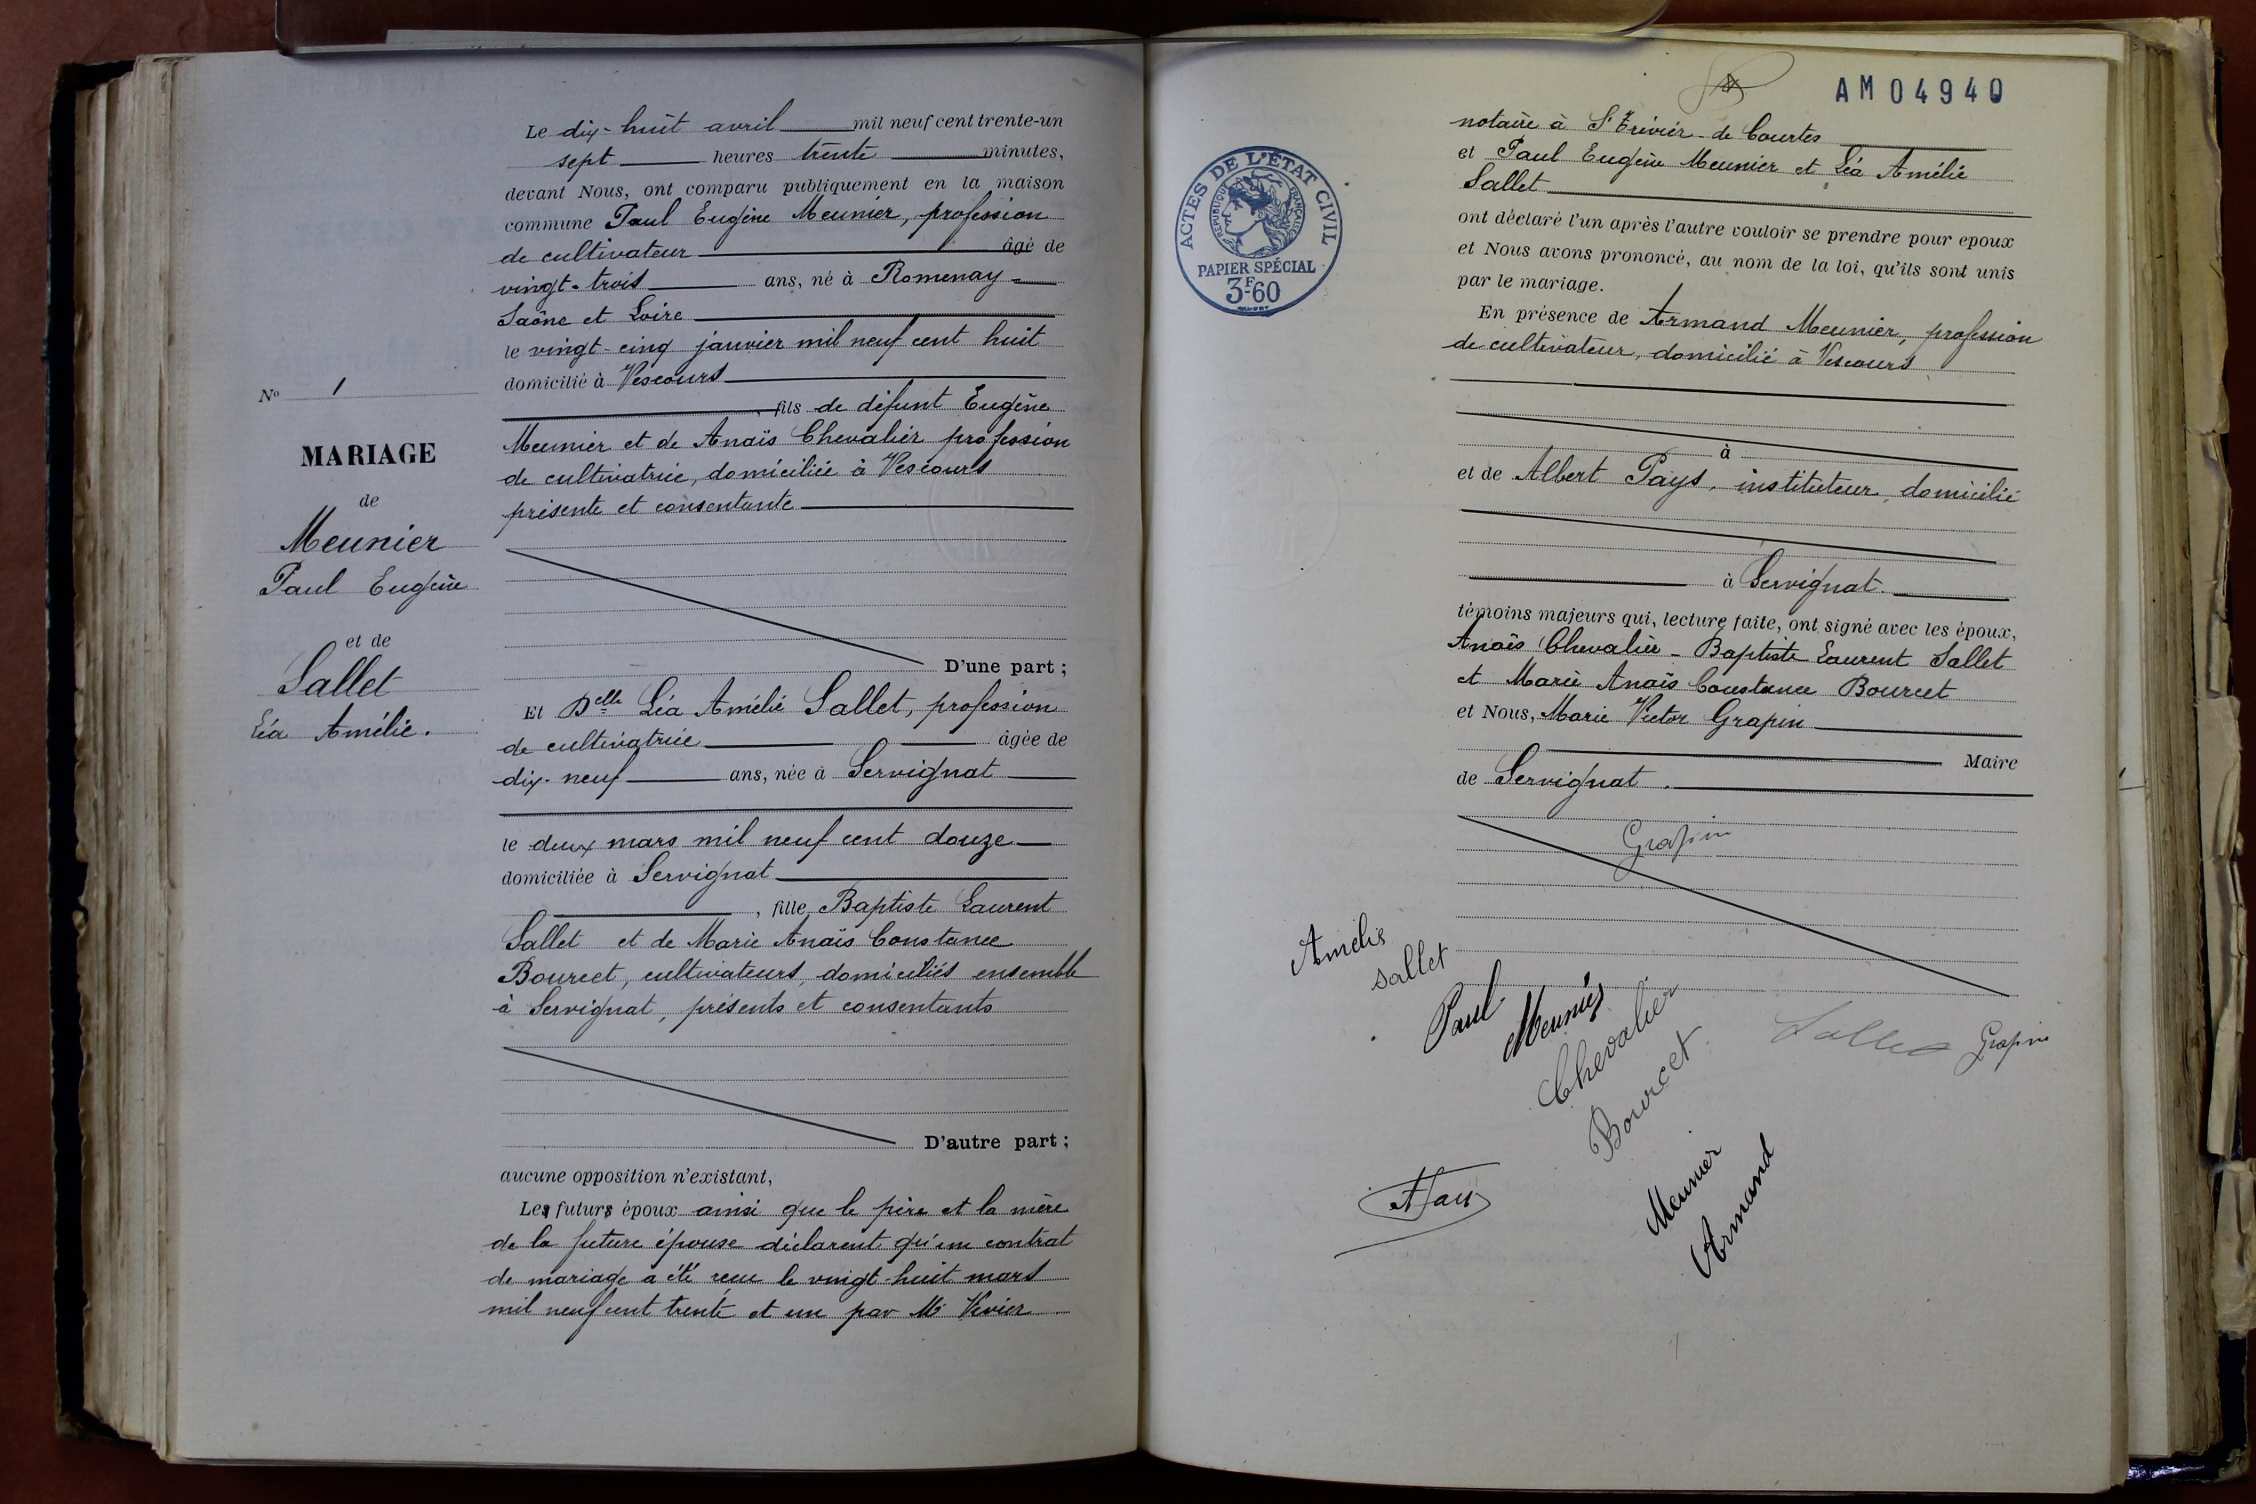 Le dix-huit avril mil neuf cent trente-un
sept heures trente minutes,
devant Nous, ont comparu publiquement en la maison
commune Paul Eugène Meunier, profession
de cultivateur âgé de
vingt-trois ans, né à Romenay
Saône et Loire
le vingt-cinq janvier mil neuf cent huit
domicilié à Vescours
, fils de défunt Eugène
Meunier et de Anaïs Chevalier profession
de cultivatrice, domiciliée à Vescours
présente et consentante
D'une part ;
Nº 1
MARIAGE
de
Meunier
Paul Eugène
et de
Sallet
Léa Amélie.
Et Delle Léa Amélie Sallet, profession
de cultivatrice âgée de
dix-neuf ans, née à Servignat
le deux mars mil neuf cent douze
domiciliée à Servignat
, fille Baptiste Laurent
Sallet et de Marie Anaïs Constance
Bourcet, cultivateurs, domiciliés ensemble
à Servignat, présents et consentants
D'autre part ;
aucune opposition n'existant,
Les futurs époux ainsi que le père et la mère
de la future épouse déclarent qu'un contrat
de mariage a été reçu le vingt-huit mars
mil neuf cent trente et un par Me Vivier
AM04940
ACTES DE L'ÉTAT CIVIL
RÉPUBLIQUE FRANÇAISE
PAPIER SPÉCIAL
3F60
notaire à St Trivier-de Courtes
et Paul Eugène Meunier et Léa Amélie
Sallet
ont déclaré l'un après l'autre vouloir se prendre pour epoux
et Nous avons prononcé, au nom de la loi, qu'ils sont unis
par le mariage.
En présence de Armand Meunier, profession
de cultivateur, domicilié à Vescours
à
et de Albert Pays, instituteur, domicilié
à Servignat.
témoins majeurs qui, lecture faite, ont signé avec les époux,
Anaïs Chevalier - Baptiste Laurent Sallet
et Marie Anaïs Constance Bourcet
et Nous, Marie Victor Grapin
Maire
de Servignat.
Grapin
Amélie
Sallet
Paul
Meunier
Chevalier
Bourcet
Sallet
Grapin
Meunier
Armand